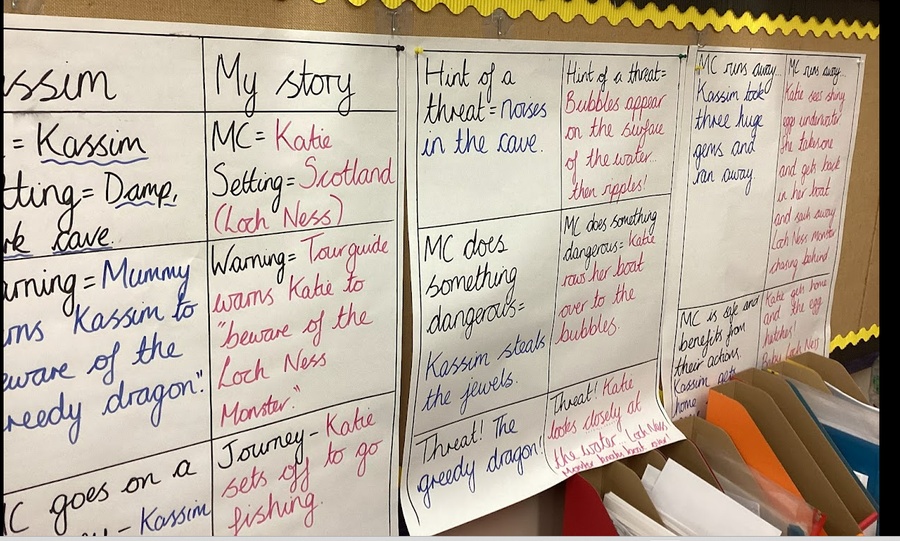 ssim
My story
= Kassim
tting = Damp,
rk cave.
MC = Katie
Setting = Scotland
(Loch Ness)
rning = Mummy
rns Kassim to
eware of the
reedy dragon."
Warning = Tourguide
warns Katie to
"beware of the
Loch Ness
Monster."
C goes on a
– Kassim
Journey – Katie
sets off to go
fishing.
Hint of a
threat = noises
in the cave.
Hint of a threat =
Bubbles appear
on the surface
of the water...
then ripples!
MC does
something
dangerous =
Kassim steals
the jewels.
MC does something
dangerous = Katie
row her boat
over to the
bubbles.
Threat! The
greedy dragon!
Threat! Katie
looks closely at
the water... Loch Ness
Monster
MC runs away...
Kassim took
three huge
gems and
ran away.
MC runs away...
Katie sees shiny
egg underwater
She takes one
and gets back
in her boat
and sails away
Loch Ness Monster
chasing behind.
MC is safe and
benefits from
their actions.
Kassim gets
home
Katie gets home
and the egg
hatches!
Baby Loch Ness